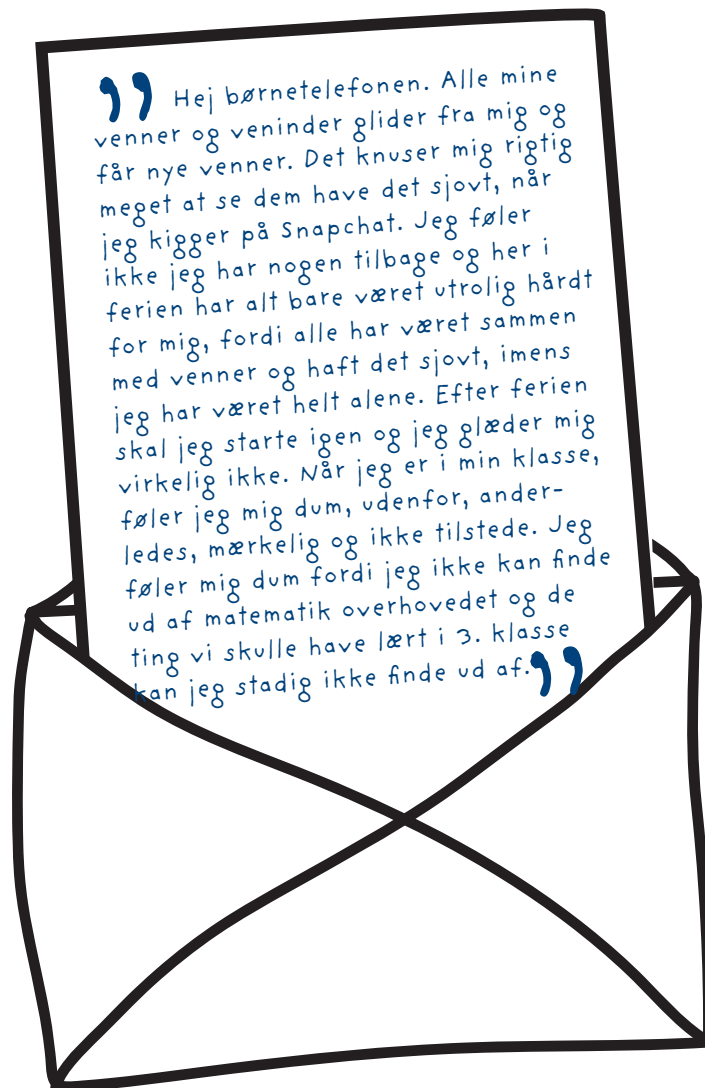 ,, Hej børnetelefonen. Alle mine
venner og veninder glider fra mig og
får nye venner. Det knuser mig rigtig
meget at se dem have det sjovt, når
jeg kigger på Snapchat. Jeg føler
ikke jeg har nogen tilbage og her i
ferien har alt bare været utrolig hårdt
for mig, fordi alle har været sammen
med venner og haft det sjovt, imens
jeg har været helt alene. Efter ferien
skal jeg starte igen og jeg glæder mig
virkelig ikke. Når jeg er i min klasse,
føler jeg mig dum, udenfor, ander-
ledes, mærkelig og ikke tilstede. Jeg
føler mig dum fordi jeg ikke kan finde
ud af matematik overhovedet og de
ting vi skulle have lært i 3. klasse
kan jeg stadig ikke finde ud af.,,